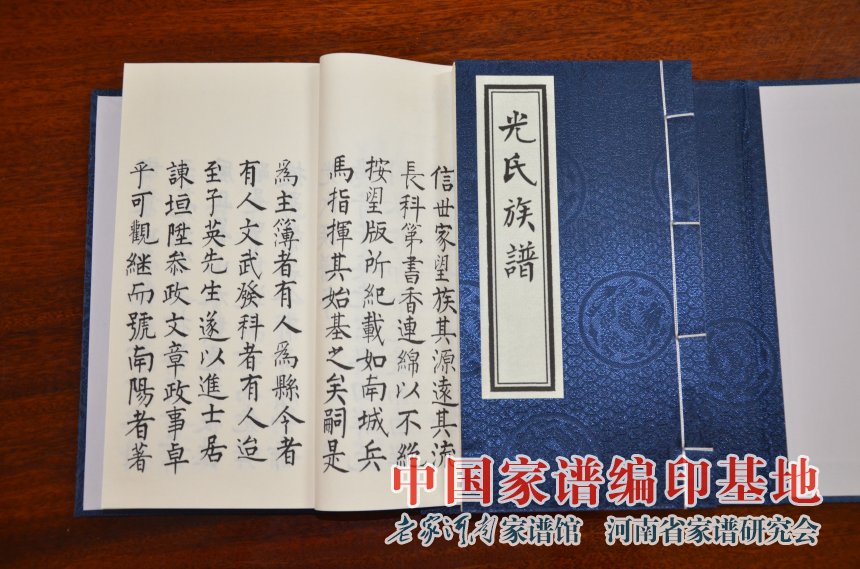 光氏族譜
信世家望族其源遠其流
長科第書香連綿以不絕
按望版所紀載如南城兵
馬指揮其始基之矣嗣是
為主簿者有人為縣令者
有人文武發科者有人迨
至子英先生遂以進士居
諫垣陞叅政文章政事卓
乎可觀継而號南陽者著
中国家谱编印基地
老家河南家谱馆 河南省家谱研究会